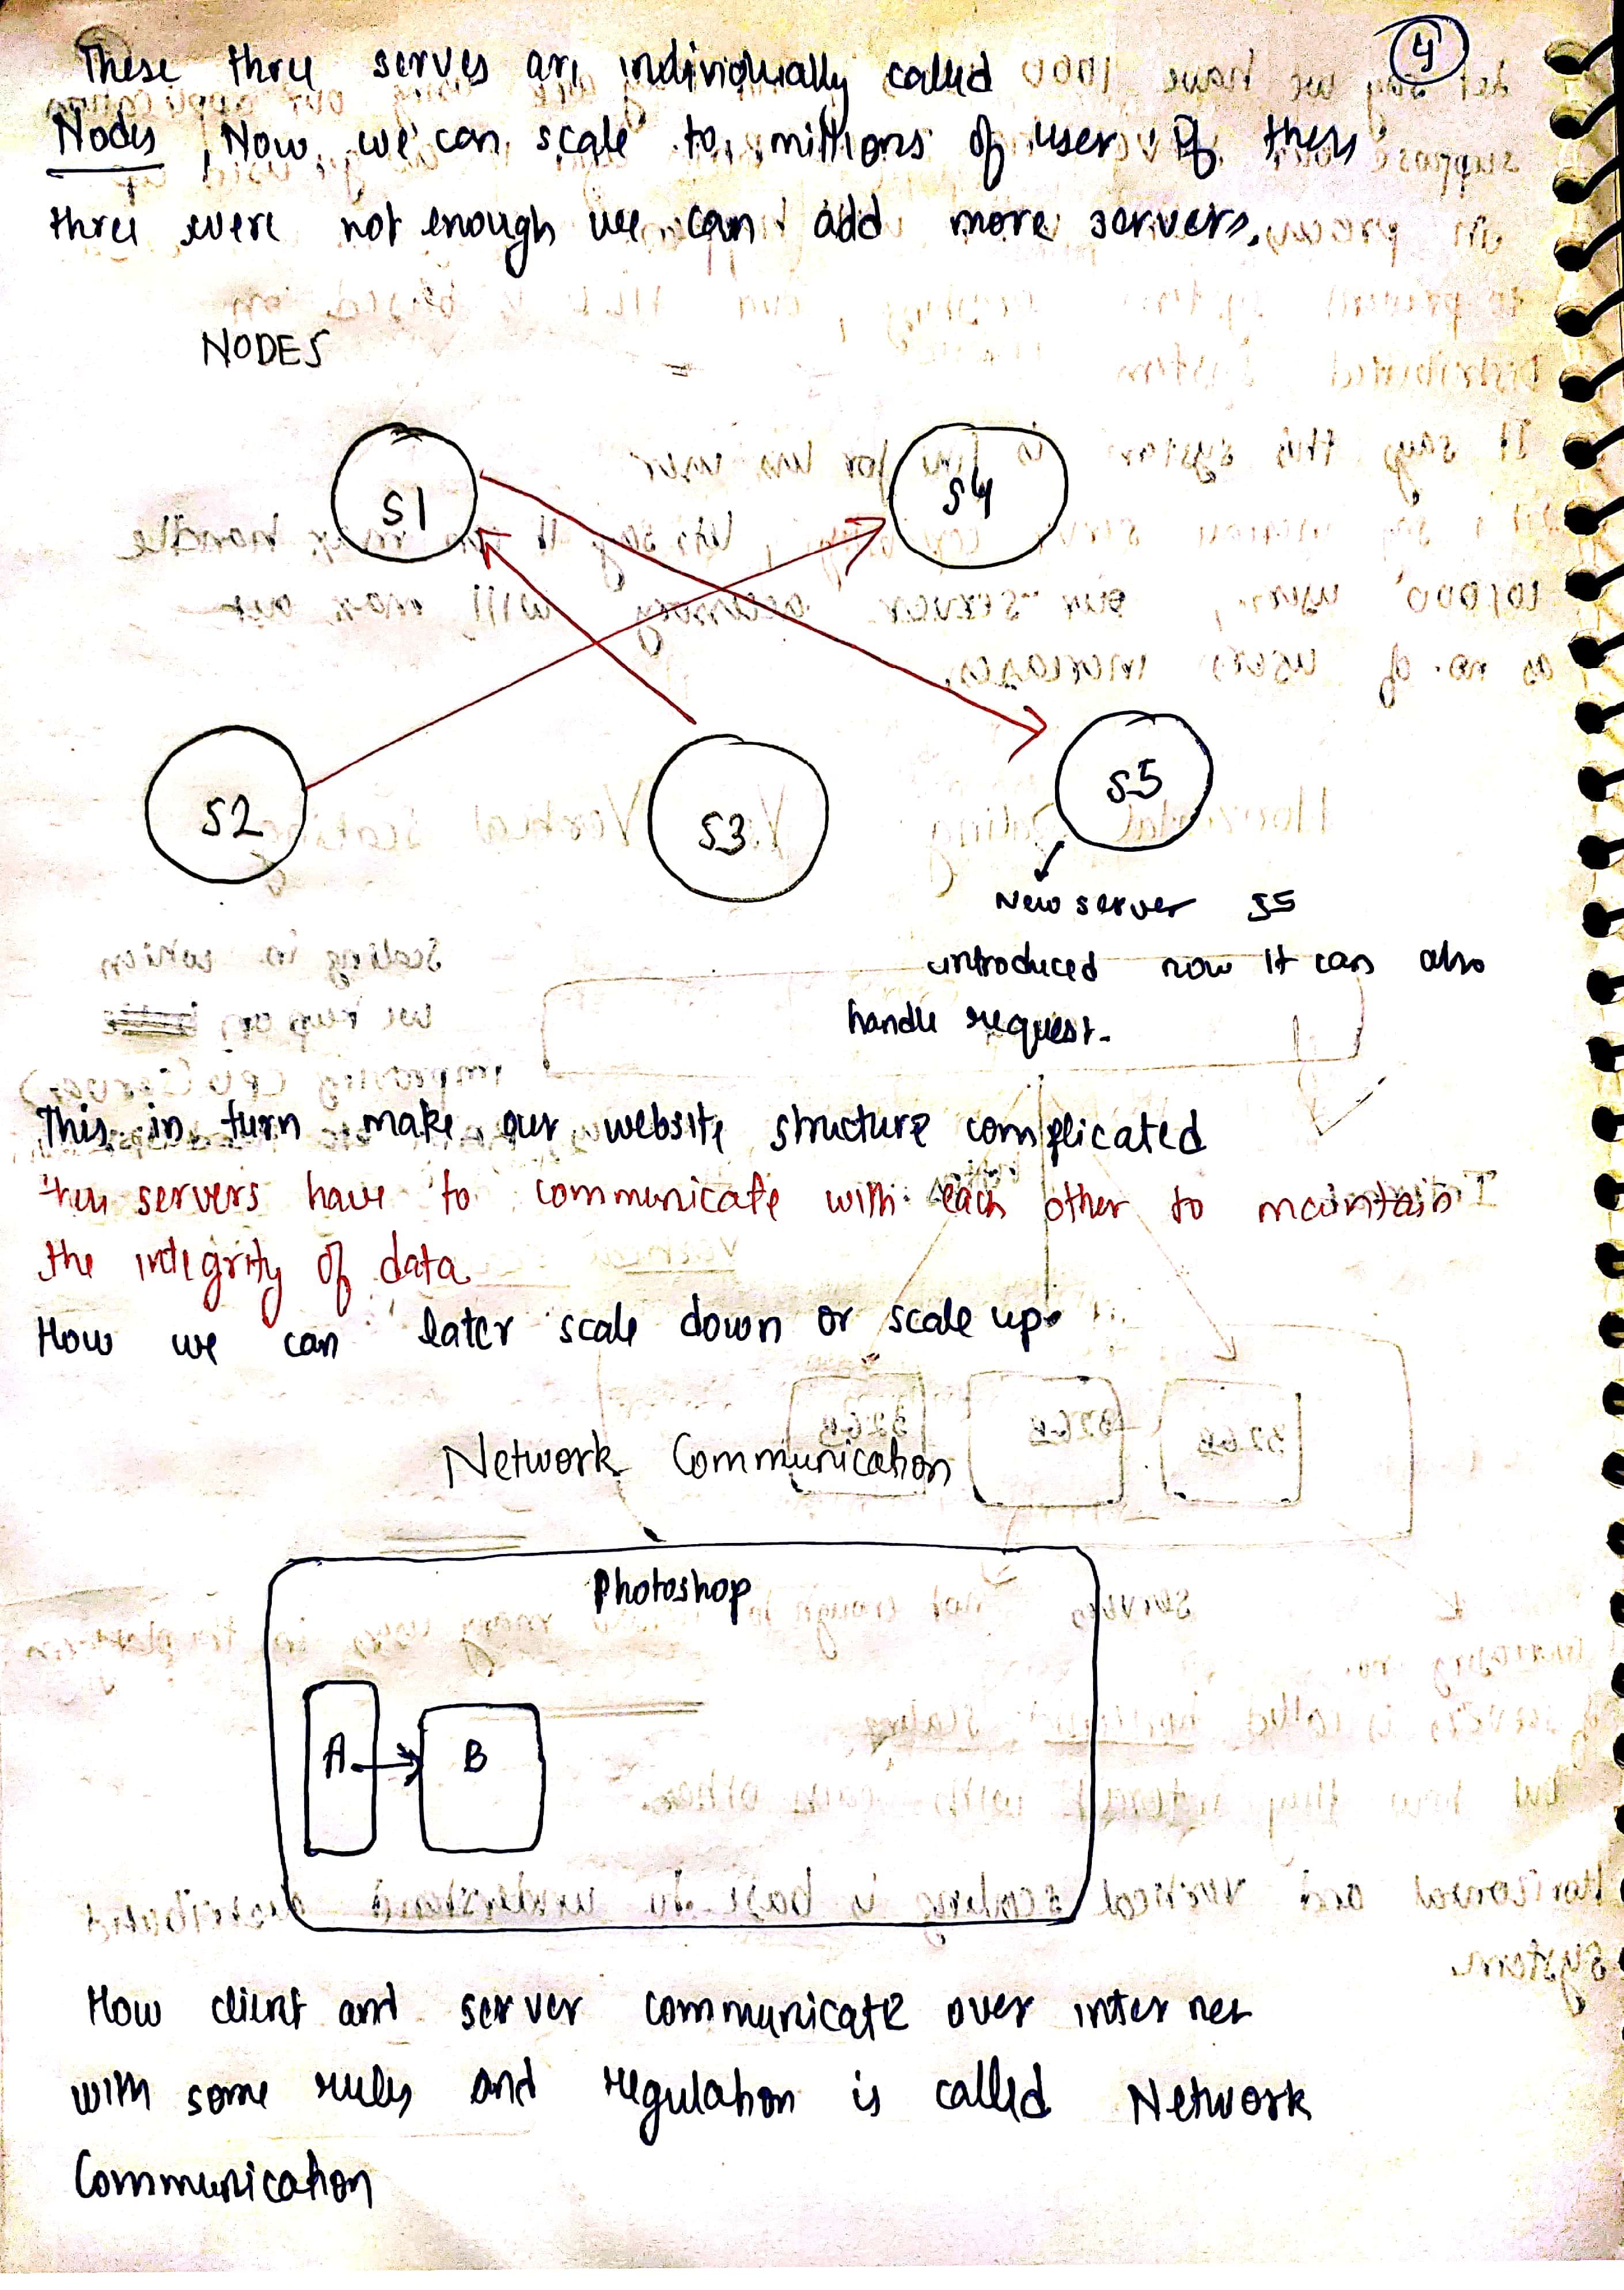 4
These three serves are individually called
Nodes Now we can scale to millions of user if these
three were not enough we can add more servers.
NODES
S1
S4
S2
S3
S5
New server S5
introduced now it can also
handle request.
This in turn make our website structure complicated
then servers have to communicate with each other to maintain
the integrity of data
How we can later scale down or scale up.
Network Communication
Photoshop
A
B
How client and server communicate over internet
with some rules and regulation is called Network
Communication